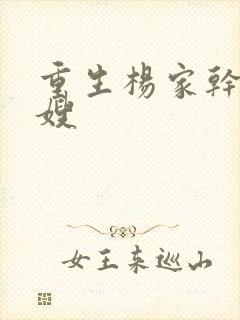 重生楊家幹
嫂
女王来巡山